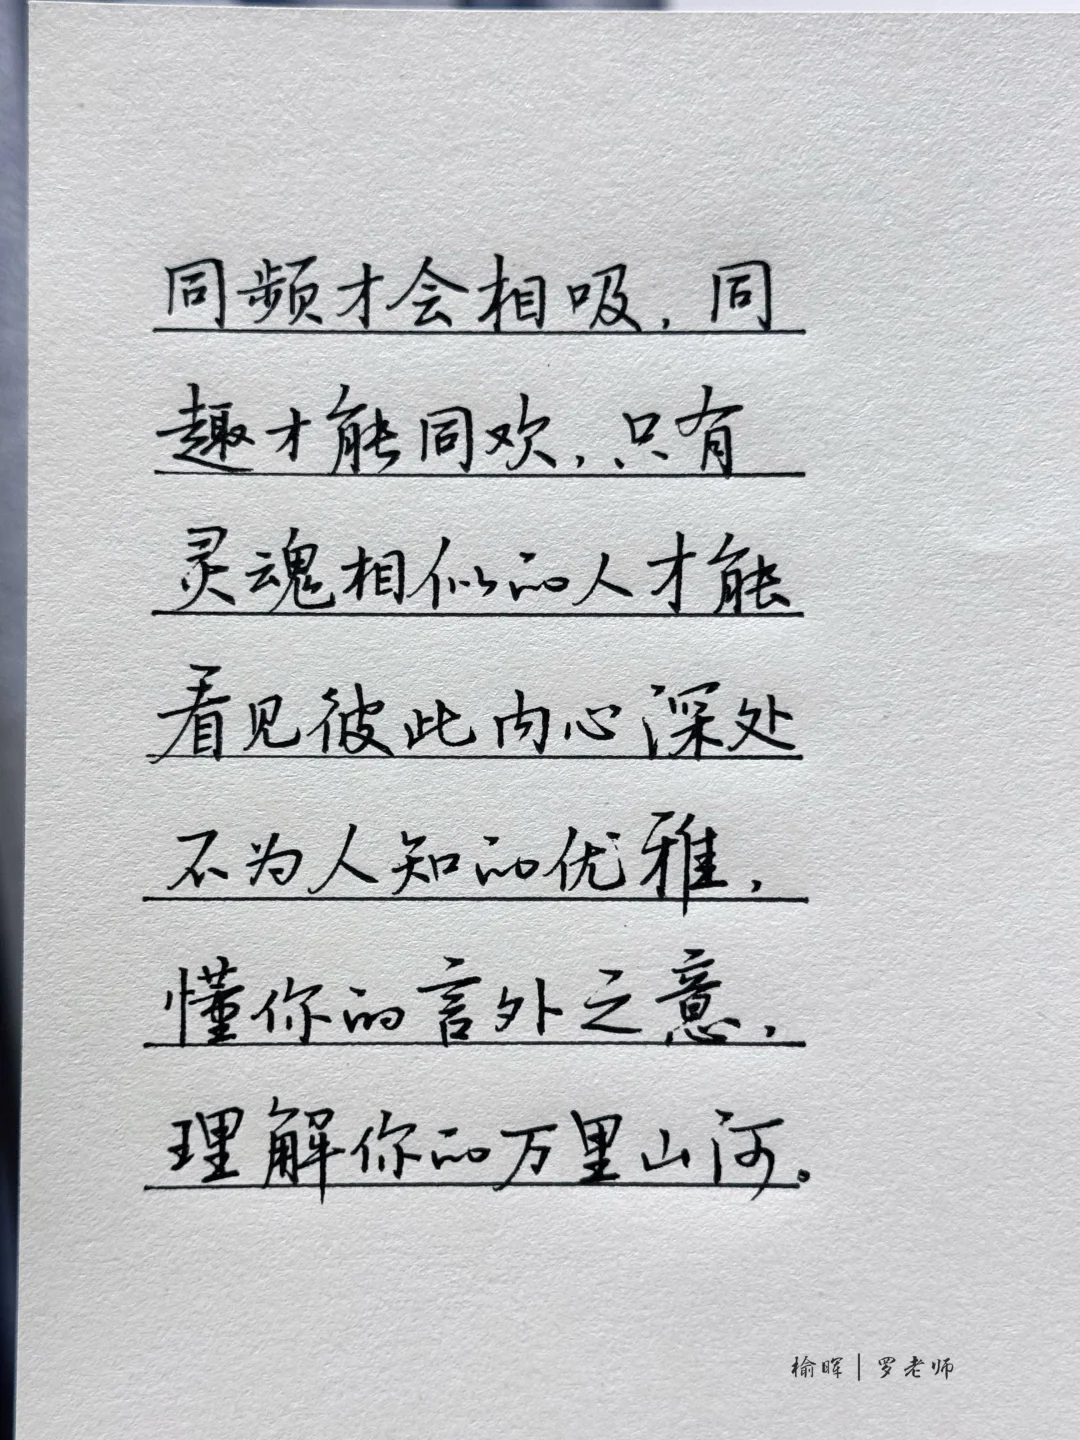 同频才会相吸，同
趣才能同欢，只有
灵魂相似的人才能
看见彼此内心深处
不为人知的优雅，
懂你的言外之意，
理解你的万里山河。
榆晖|罗老师